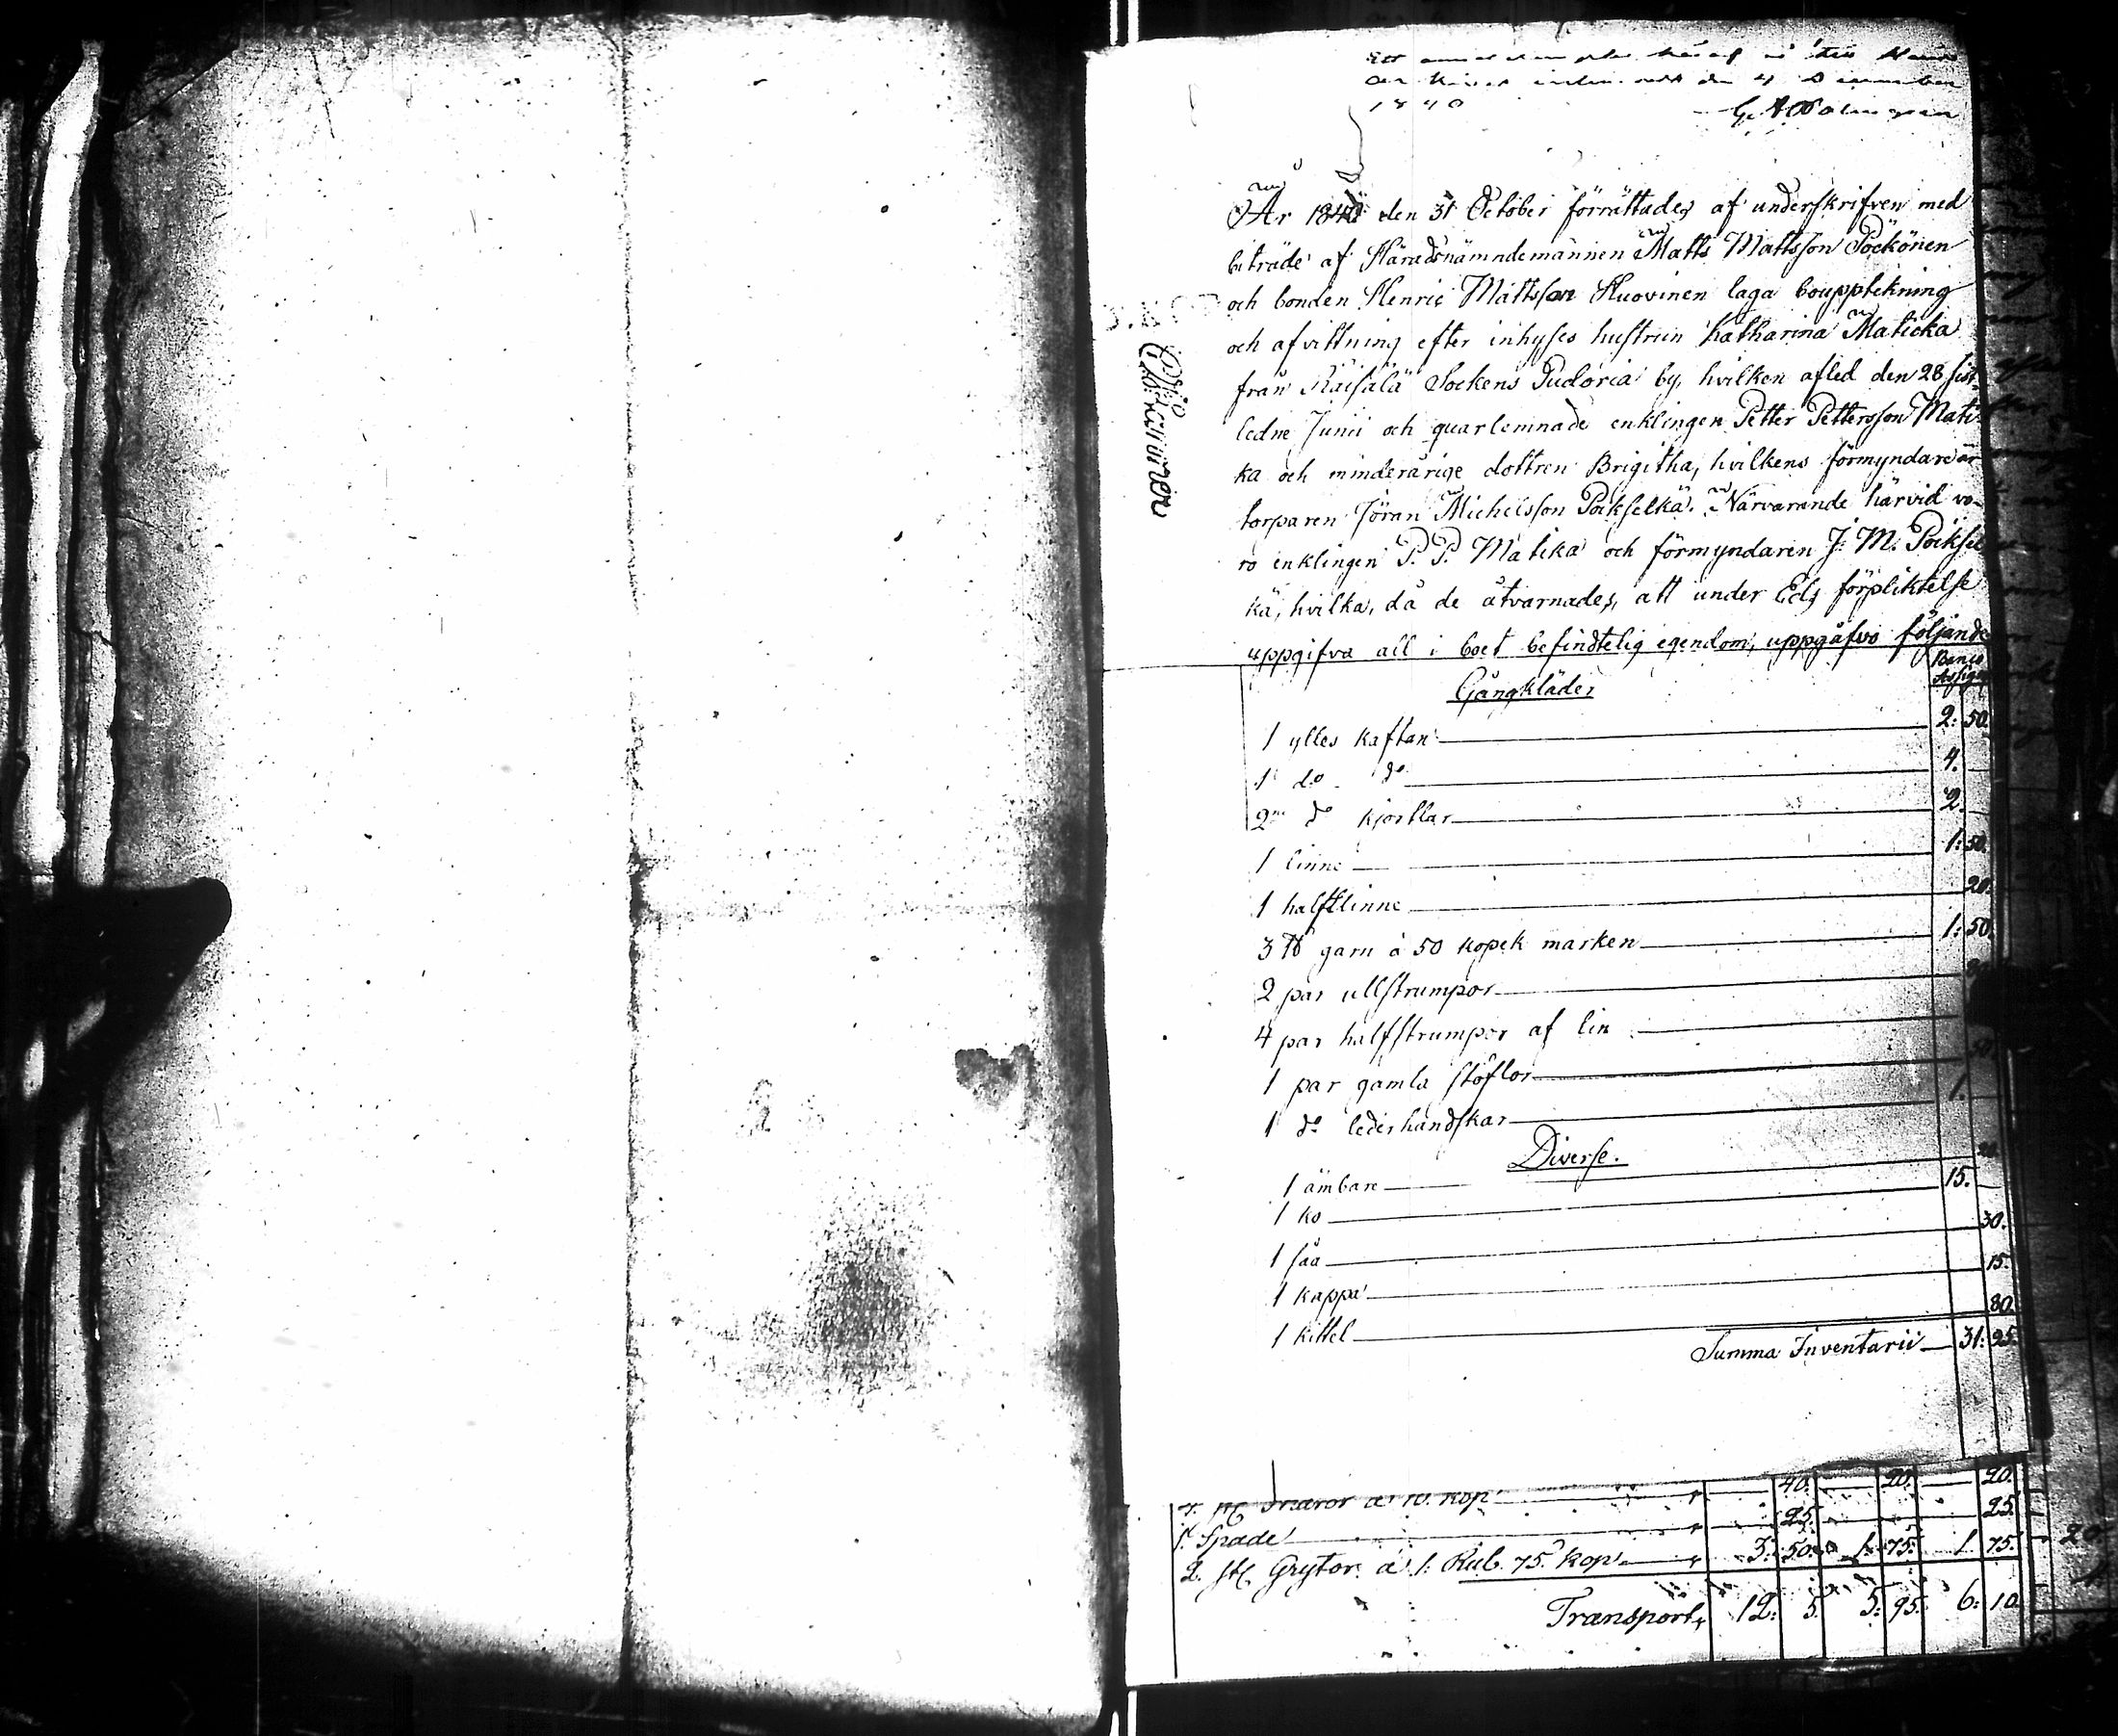 den 4 December
1840
År 1840 den 31 October förrättades af underskrifven med
biträde af Häradsnämndemannen Matts Mattsson Pöckönen
och bonden Henric Mattsson Huovinen laga bouppteckning
och afvittning efter inhyses hustrun Katharina Maticka
från Räisälä Sockens Pudoria by, hvilken afled den 28 sist-
ledne Junii och quarlemnade enklingen Petter Pettersson Mati-
ka och minderårige dottren Brigitha, hvilkens förmyndare är
torparen Jöran Michelsson Poikselkä. Närvarande härvid vo-
ro enklingen P. P. Matika och förmyndaren J. M. Poiksel
kä, hvilka, då de åtvarnades, att under Eds förpliktelse
uppgifva all i boet befindtelig egendom, uppgåfvo följande
Banco
Assign
Gångkläder
1 ylles kaftan 2. 50.
1 do do 4.
2 do kjortlar 2.
1 linne 1: 50.
1 halftlinne 20.
3 ℔ garn à 50 kopek marken 1: 50.
2 par ullstrumpor
4 par halfstrumpor af lin
1 par gamla stöflor 50.
1 do lederhandskar 1.
Diverse.
1 ämbare
1 ko 15.
1 såå 30.
1 kappa 15.
1 kittel 80.
Summa Inventarii 31. 95.
kop 40. 20. 20.
1. Spade 25. 25.
2. st. Grytor á 1. Rub. 75 kop 3. 50. 1. 75. 1. 75.
Transport, 12. 5. 5. 95. 6. 10.